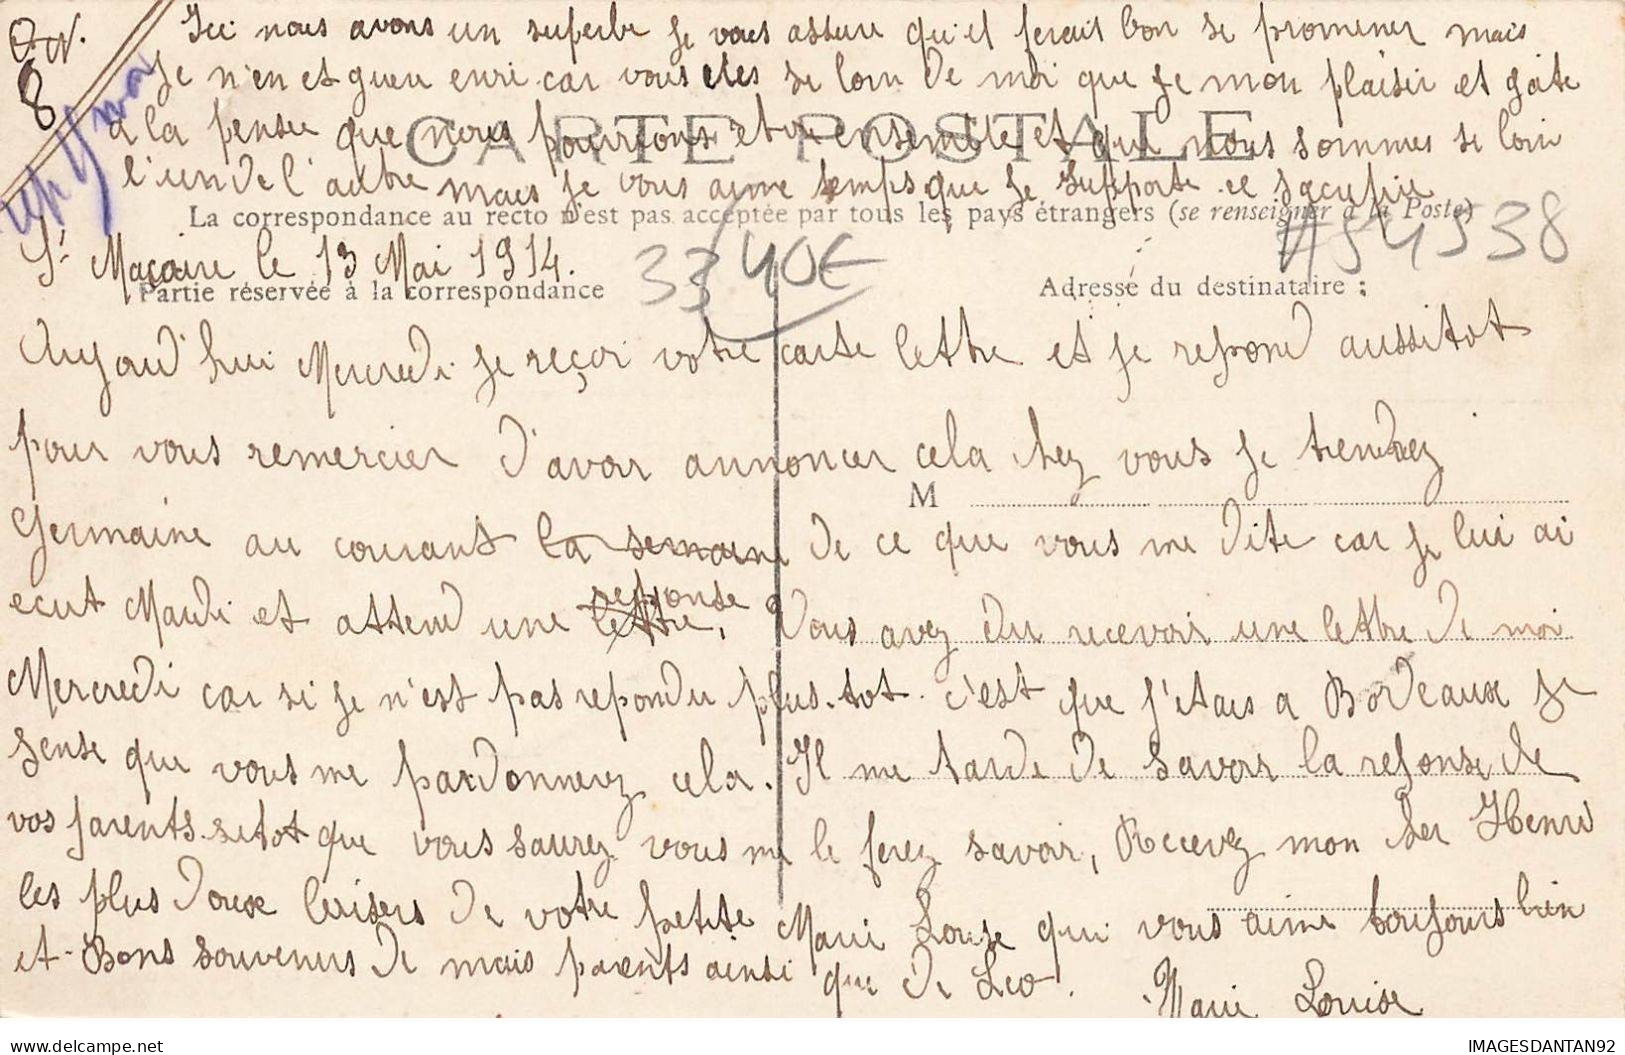 Ici nous avons un superbe je vous assure qu'il ferait bon se promener mais
je n'en et gueu envi car vous etes se loin de moi que je mon plaisir et gate
a la pensee que nous pourrions etre ensemble et que nous sommes si loin
CARTE POSTALE
l'un de l'autre mais je vous aime temps que je supporte ce sacrifie
La correspondance au recto n'est pas acceptée par tous les pays étrangers (se renseigner à la Poste)
St Macaire le 13 Mai 1914.
Partie réservée à la correspondance
Adresse du destinataire :
Aujourd'hui Mercredi je reçoi votre carte lettre et je repond aussitot
pour vous remercier d'avoir annoncer cela chez vous je tiendrez
M
Germaine au courant la semaine de ce que vous me dite car je lui ai
ecrit Mardi et attend une lettre, reponse Vous avez du recevoir une lettre de moi
Mercredi car si je n'est pas repondu plus-tot c'est que j'etais a Bordeaux je
sense que vous me pardonnerez cela. Il me tarde de savoir la reponse de
vos parents sitot que vous saurez vous me le ferez savoir, Recevez mon cher Henri
les plus doux baisers de votre petite Marie Louise qui vous aime toujours bien
et Bons souvenirs de mais parents ainsi que de Leo.
Marie Louise
33
40€
454538
8
www.delcampe.net
IMAGESDANTAN92